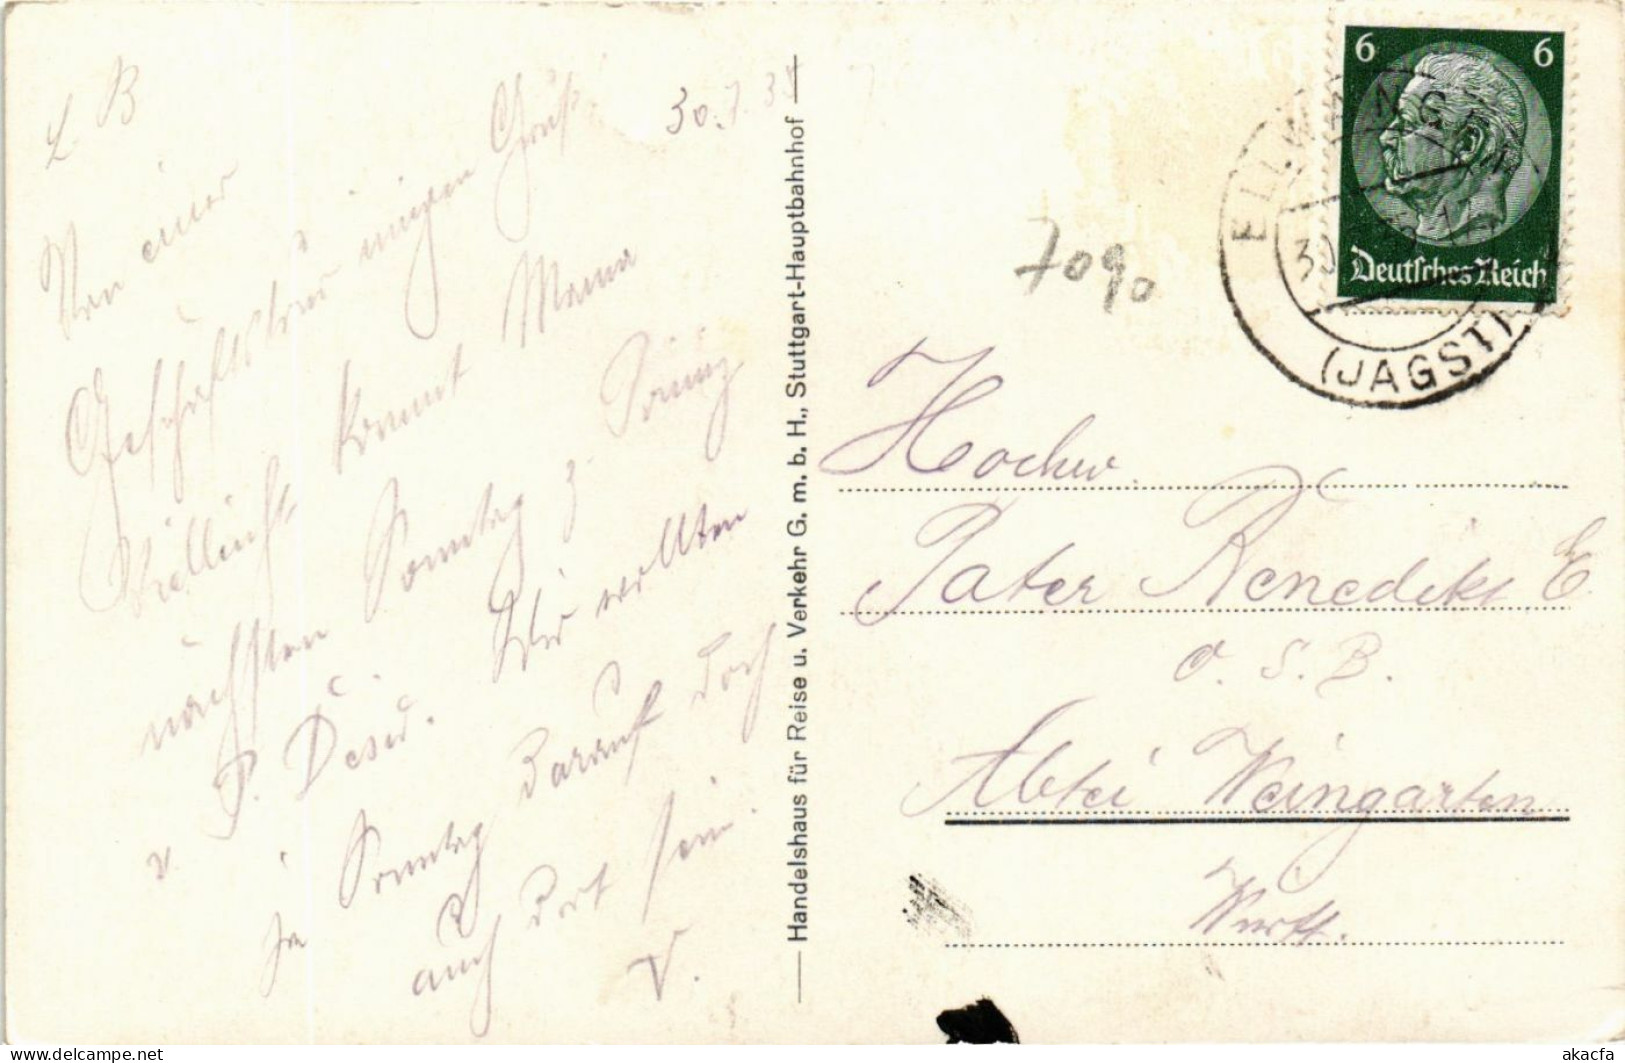 30.7.3
L B
Von einer
Geschäftstour innigen Gruß
Vielleicht kommt Mama
nächsten Sonntag z.
v. P. Desid. Wir wollten
Sonntag darauf doch
auch dort sein.
V.
Handelshaus für Reise u. Verkehr G. m. b. H., Stuttgart-Hauptbahnhof
6 6
Deutsches Reich
ELLWANGEN
30
(JAGST)
7090
Hochw.
Pater Benedikt E.
O. S. B.
Abtei Weingarten
Württ.
www.delcampe.net
akacfa